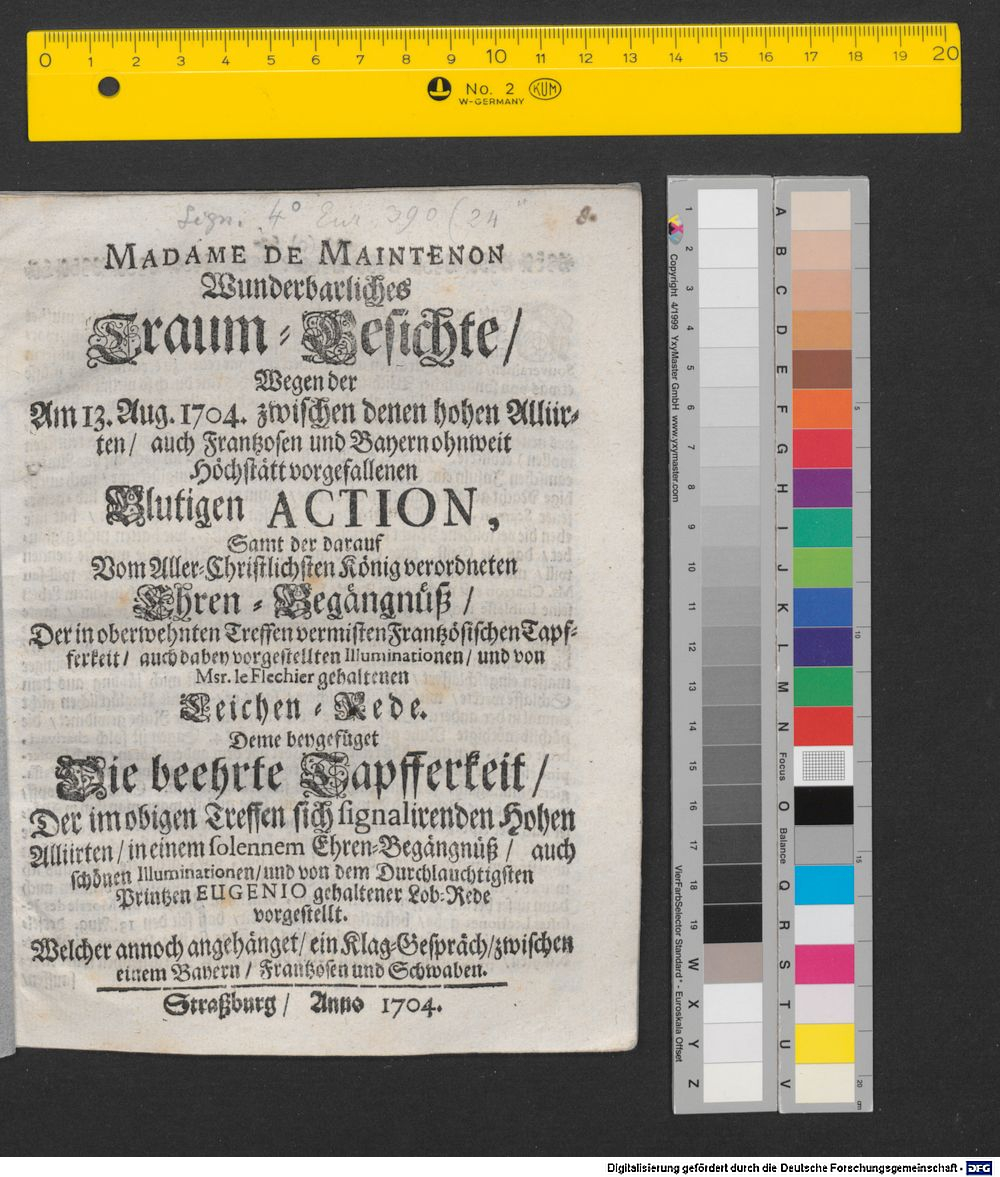 0 1 2 3 4 5 6 7 8 9 10 11 12 13 14 15 16 17 18 19 20
No. 2 KUM
W-GERMANY
Sign. 4° Eur. 390 (24
8.
MADAME DE MAINTENON
Wunderbarliches
Traum-Gesichte/
Wegen der
Am 13. Aug. 1704. zwischen denen hohen Alliir-
ten/ auch Frantzosen und Bayern ohnweit
Höchstätt vorgefallenen
Blutigen ACTION,
Samt der darauf
Vom Aller-Christlichsten König verordneten
Ehren-Begängnüß/
Der in oberwehnten Treffen vermisten Frantzösischen Tapf-
ferkeit/ auch dabey vorgestellten Illuminationen/ und von
Msr. le Flechier gehaltenen
Leichen-Rede.
Deme beygefüget
Die beehrte Tapfferkeit/
Der im obigen Treffen sich signalirenden Hohen
Alliirten/ in einem solennem Ehren-Begängnüß/ auch
schönen Illuminationen/ und von dem Durchlauchtigsten
Printzen EUGENIO gehaltener Lob-Rede
vorgestellt.
Welcher annoch angehänget/ ein Klag-Gespräch/ zwischen
einem Bayern/ Frantzosen und Schwaben.
Straßburg/ Anno 1704.
1 2 3 4 5 6 7 8 9 10 11 12 13 14 15 16 17 18 19 W X Y Z
Copyright 4/1999 YxyMaster GmbH www.yxymaster.com
VierFarbSelector Standard* - Euroskala Offset
A B C D E F G H I J K L M N Focus O Balance Q R S T U V
5 10 15 20 cm
Digitalisierung gefördert durch die Deutsche Forschungsgemeinschaft - DFG